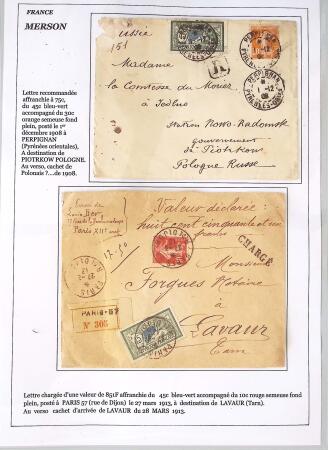 FRANCE
MERSON
Lettre recommandée
affranchie à 75c,
du 45c bleu-vert
accompagné du 30c
orange semeuse fond
plein, posté le 1er
décembre 1908 à
PERPIGNAN
(Pyrénées orientales),
A destination de
PIOTRKOW POLOGNE.
Au verso, cachet de
Polonais ?....de 1908.
Russie
151
R
PERPIGNAN
PERPIGNAN
1 -12
08
PYRÉNÉES-ORIENTALES
Madame
la Comtesse du
à
station Nowo-Radomsk
gouvernement
de Piotrkow
Pologne Russe
Envoi de
Paris XIIe
12-50
Valeur déclarée:
huit cent cinquante et un
francs
CHARGÉ
Monsieur
Forgues Notaire
à
Lavaur
Tarn
PARIS-57
N° 305
Lettre chargée d'une valeur de 851F affranchie du 45c bleu-vert accompagné du 10c rouge semeuse fond
plein, posté à PARIS 57 (rue de Dijon) le 27 mars 1913, à destination de LAVAUR (Tarn).
Au verso cachet d'arrivée de LAVAUR du 28 MARS 1913.